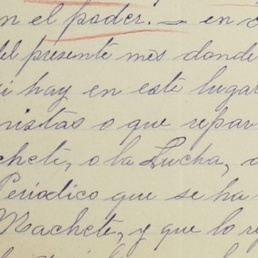 en el poder. — en c
del presente mes donde
si hay en este lugar
nistas o que repar
chete, o la Lucha, o
Periódico que se ha
Machete, y que lo r